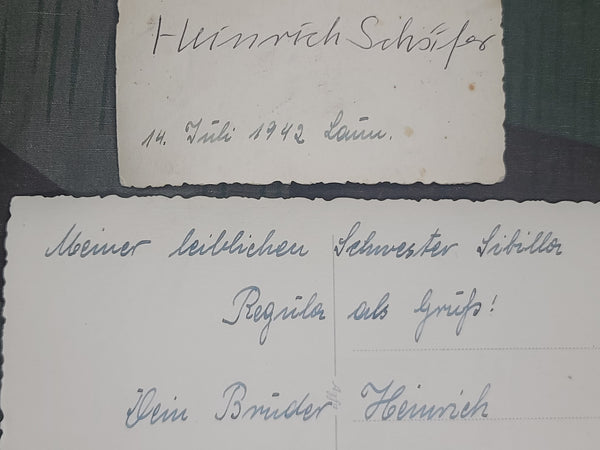 Heinrich Schäfer
14. Juli 1942 Laun.
Meiner leiblichen Schwester Sibilla
Regula als Gruß!
Dein Bruder Heinrich